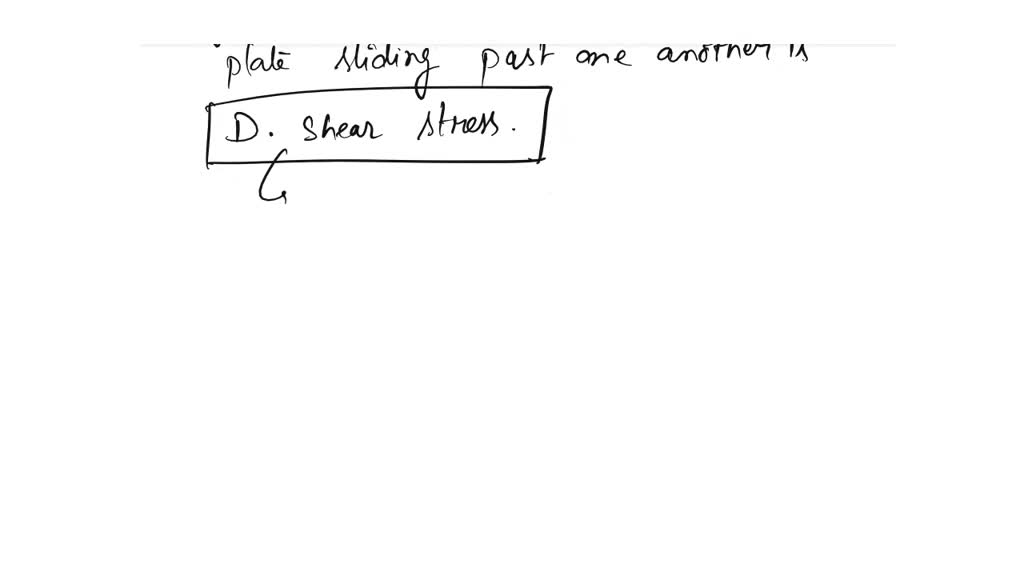 plate sliding past one another is
D. shear stress.